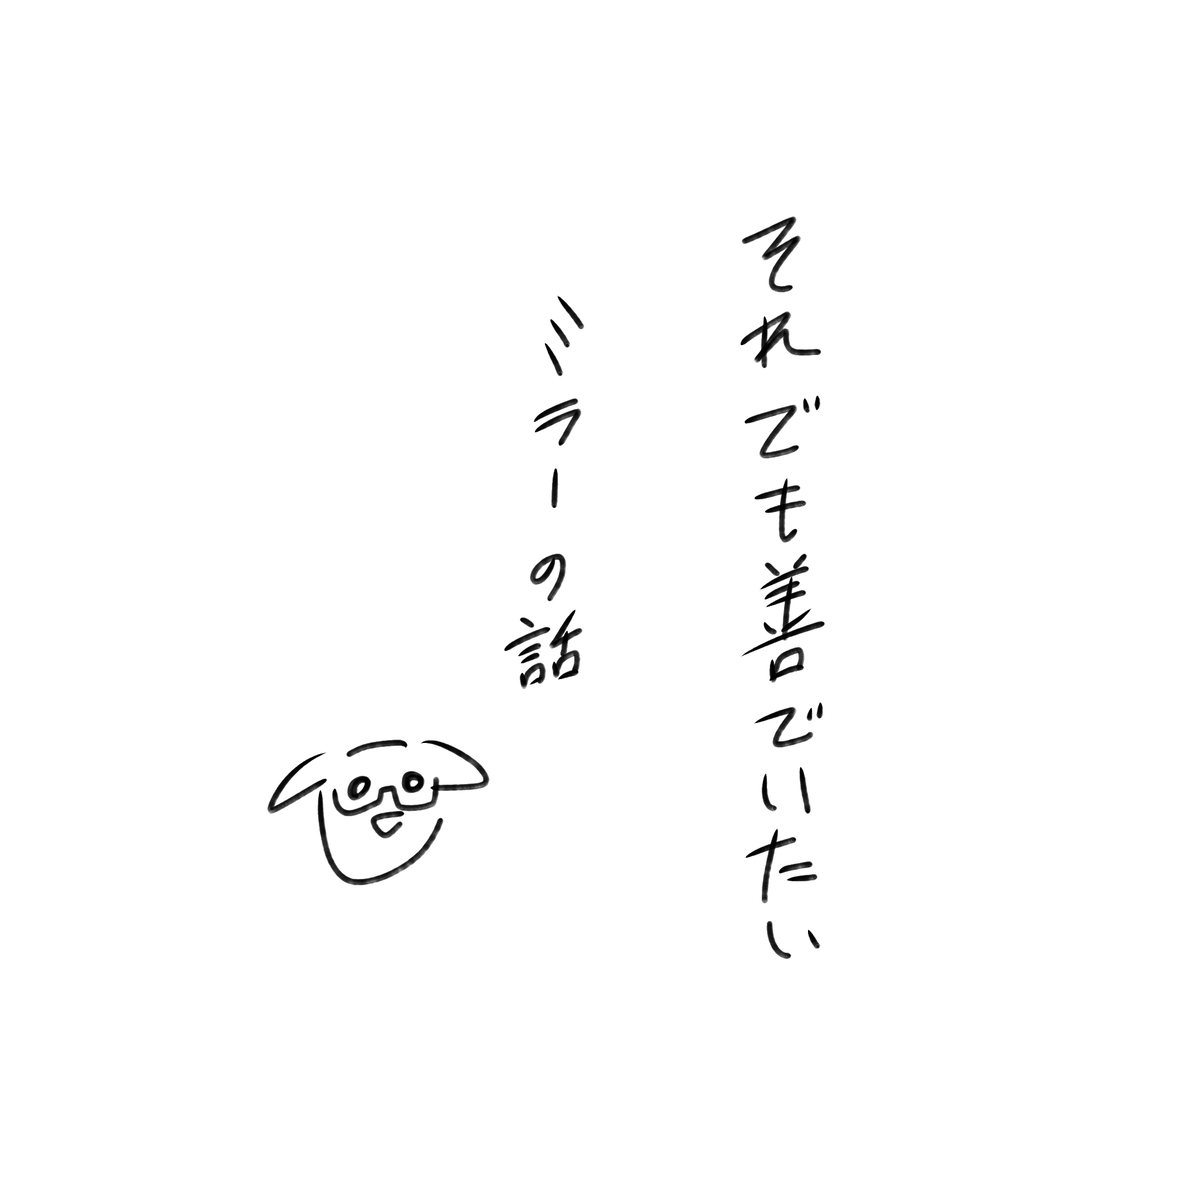 それでも善でいたい
ミラーの話